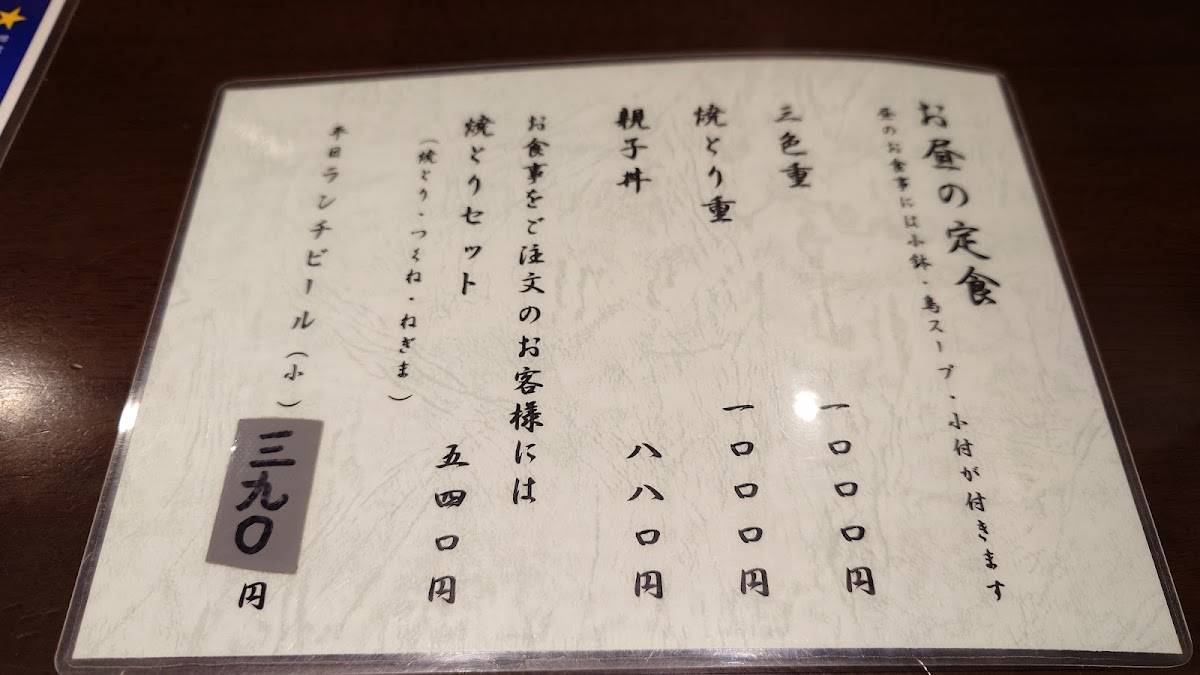 お昼の定食
昼のお食事には小鉢・鳥スープ・小付が付きます
三色重 一〇〇〇円
焼とり重 一〇〇〇円
親子丼 八八〇円
お食事をご注文のお客様には
焼とりセット 五四〇円
（焼とり・つくね・ねぎま）
平日ランチビール（小） 三九〇円